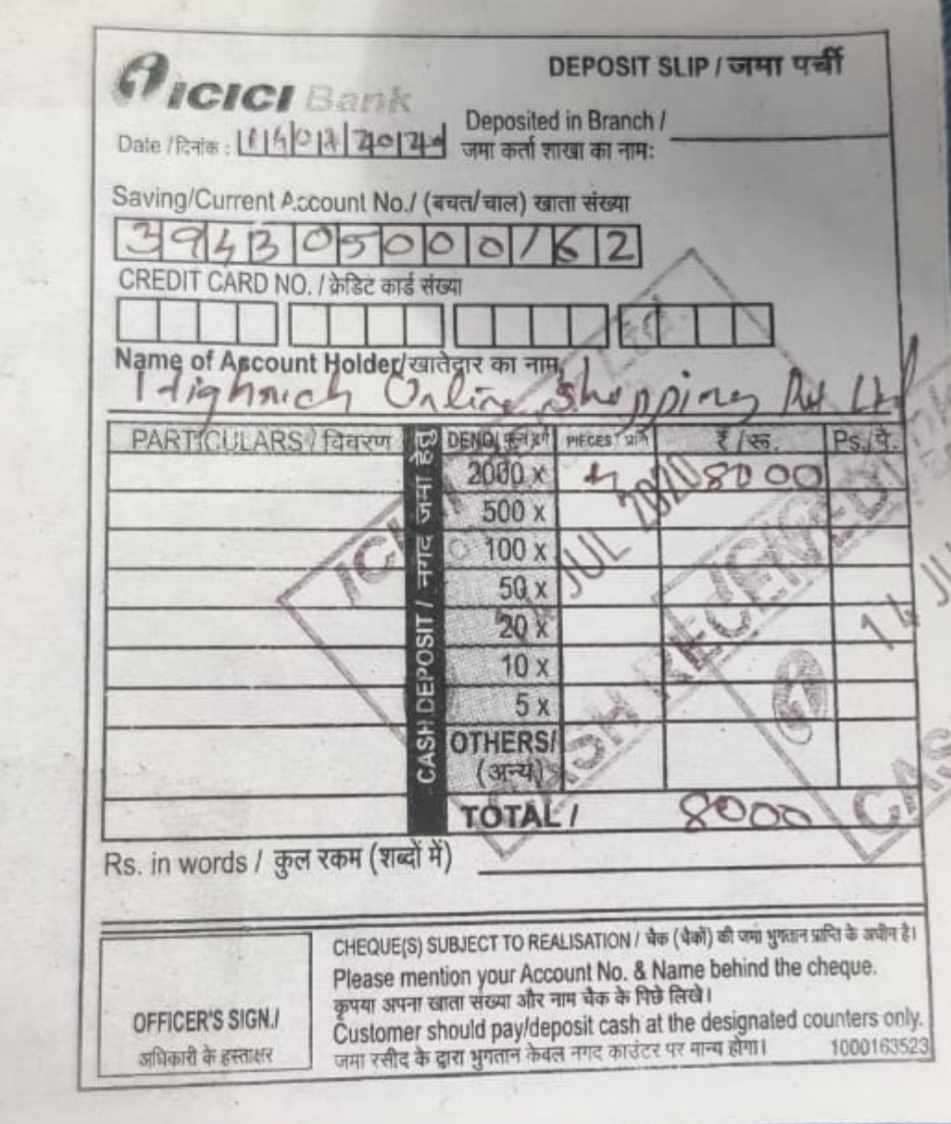 ICICI Bank
DEPOSIT SLIP / जमा पर्ची
Date / दिनांक :
Deposited in Branch /
जमा कर्ता शाखा का नामः
Saving/Current Account No./ (बचत/चालू) खाता संख्या
394305000162
CREDIT CARD NO. / क्रेडिट कार्ड संख्या
Name of Account Holder/खातेदार का नाम
Highrich Online Shopping Pvt Ltd
PARTICULARS / विवरण
CASH DEPOSIT / नगद जमा हेतु
DENO/ PIECES / ₹ /रू. Ps./पै.
2000 x 4 8000
500 x
100 x
50 x
20 x
10 x
5 x
OTHERS/
(अन्य)
TOTAL / 8000
JUL 2020
CASH RECEIVED
14 JU
CAS
Ltd.
Rs. in words / कुल रकम (शब्दों में)
OFFICER'S SIGN./
अधिकारी के हस्ताक्षर
CHEQUE(S) SUBJECT TO REALISATION / चैक (चैकों) की जमा भुगतान प्राप्ति के अधीन है।
Please mention your Account No. & Name behind the cheque.
कृपया अपना खाता संख्या और नाम चैक के पिछे लिखे।
Customer should pay/deposit cash at the designated counters only.
जमा रसीद के द्वारा भुगतान केवल नगद काउंटर पर मान्य होगा।
1000163523